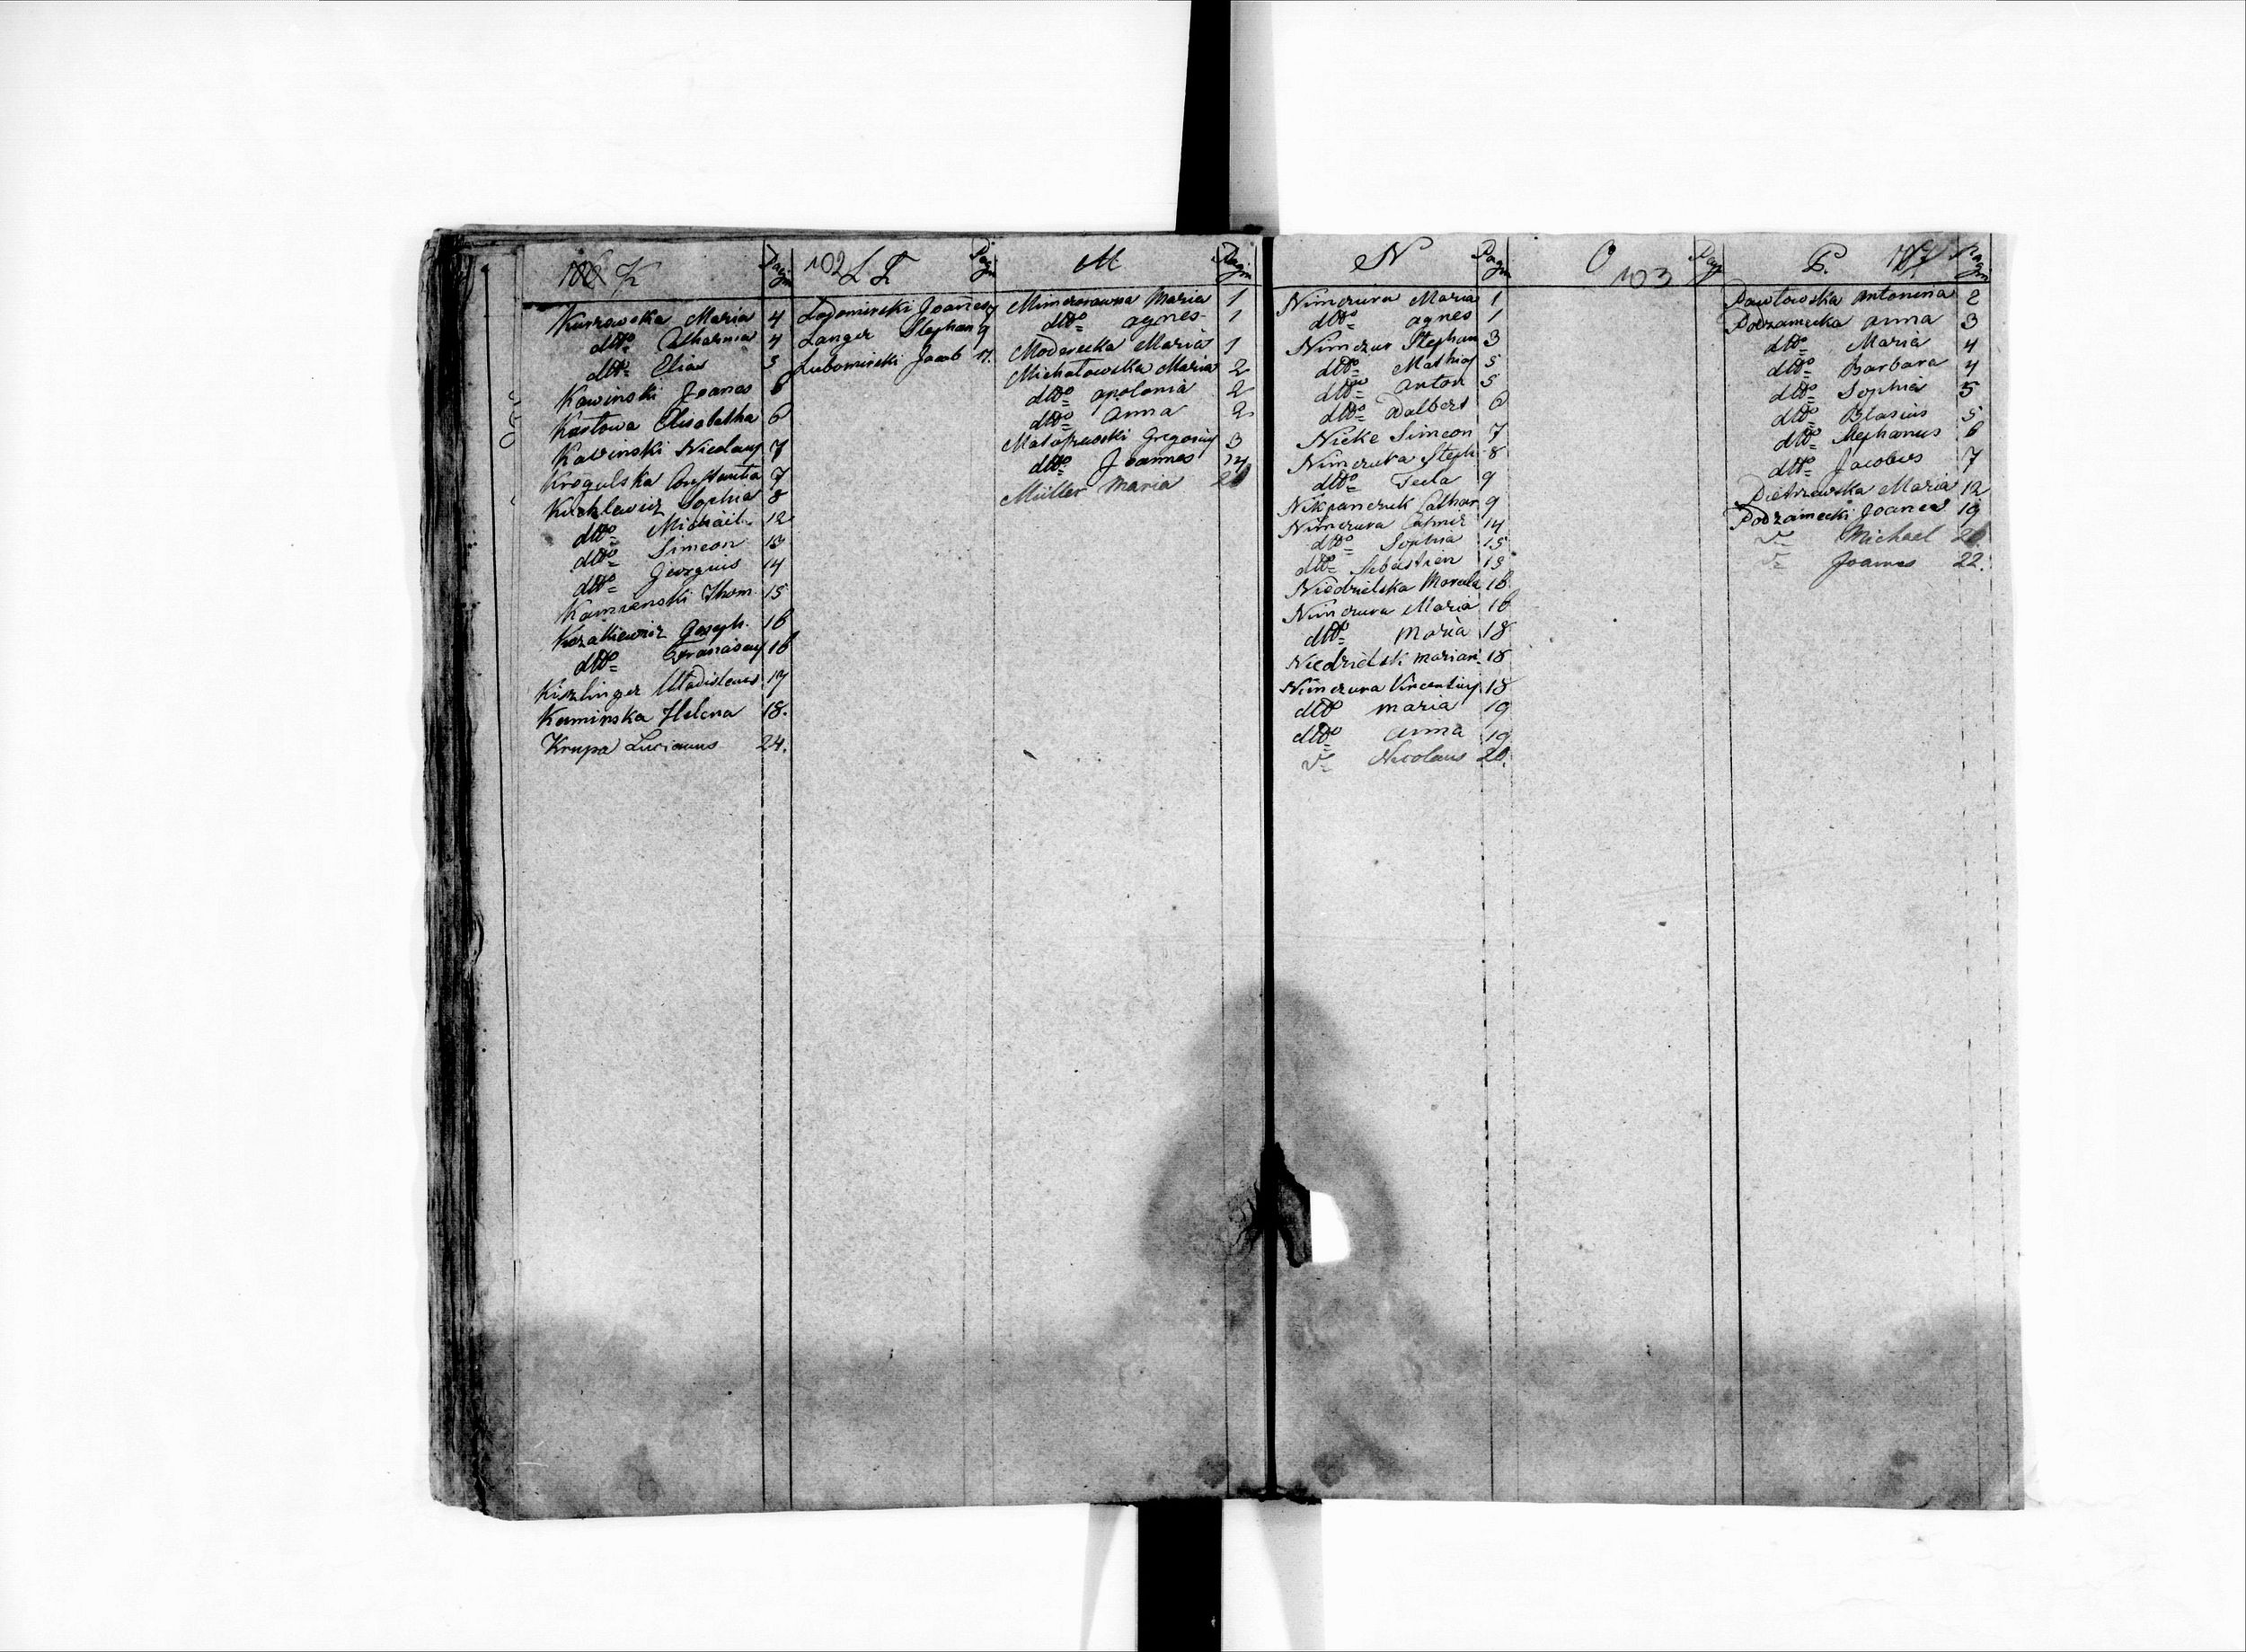 K Pagin
Kurzowska Maria 4
dtto Catharina 4
dtto Elias 5
Kawinski Joanes 6
Kastowa Elisabetha 6
Kawinski Nicolaus 7
Krogulska Constantia 7
Kuchlewicz Sophia 8
dtto Michail 12
dtto Simeon 13
dtto Georgius 14
Kamienski Thom. 15
Kozatkiewicz Joseph. 16
dtto Franciscus 16
Kiszlinger Wladislaus 17
Kaminska Helena 18.
Krupa Lucianus 24.
102 L Ł Pagin
Ladomirski Joanes
Langer Stephan 9
Lubomirski Jacob 17.
M Pagin
Mimczorawna Maria 1
dtto Agnes 1
Moderecka Maria 1
Michałowska Maria 2
dtto Apolonia 2
dtto Anna 2
Gregorius 3
dtto Joannes 14
Müller Maria
N Pagin
Nimczura Maria 1
dtto Agnes 1
Nimczur Stephan 3
dtto Mathias 5
dtto Anton 5
dtto Dalbert 6
Nicke Simeon 7
Nimczura Steph. 8
dtto Tecla 9
Nikpanczuk Cathar 9
Nimczura 14
dtto Sophia 15
dtto Sebastien 15
Niedzielska Marcela 16
Nimczura Maria 16
dtto Maria 18
Niedzielski Marian. 18
Nimczura Vincentius 18
dtto Maria 19
dtto Anna 19
Nicolaus 20.
O 103 Pag
P. Pagin
Pawłowska Antonina 2
Podzamecka Anna 3
dtto Maria 4
dtto Barbara 4
dtto Sophia 5
dtto Blasius 5
dtto Stephanus 6
dtto Jacobus 7
Pietrzawska Maria 12
Podzamecki Joanes 19
Michael
Joannes 22.